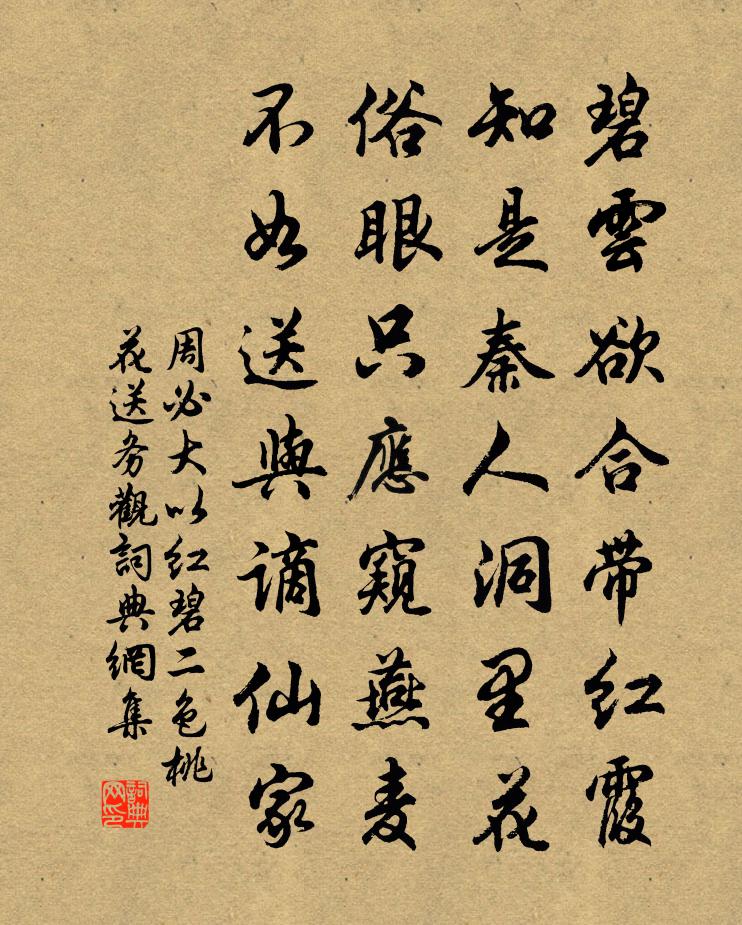 碧雲欲合带红霞
知是秦人洞里花
俗眼只應窺燕麦
不如送與谪仙家
周必大以红碧二色桃
花送务觀詞典網集
詞典网印